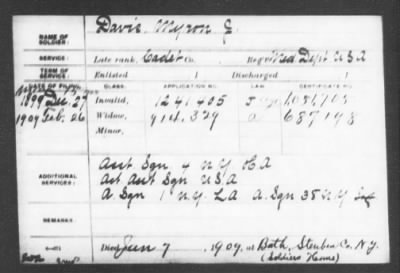 NAME OF SOLDIER: Davis, Myron J.
SERVICE: Late rank, Cadet Co. Reg't Med Dept U S A
TERM OF SERVICE: Enlisted 1 Discharged 1
DATE OF FILING. CLASS. APPLICATION NO. LAW. CERTIFICATE NO.
1899 Dec. 27 Invalid, 1241405 1081705
1909 Feb. 26 Widow, 914.329 a 687198
Minor,
ADDITIONAL SERVICES: Asst Sgn 4 N Y H A
Act Asst Sgn U.S.A
A. Sgn 1 N.Y. L A A. Sgn 38 N.Y Inf
REMARKS:
Died Jan 7, 1909, at Bath, Steuben Co. N.Y.
(Soldiers Home)